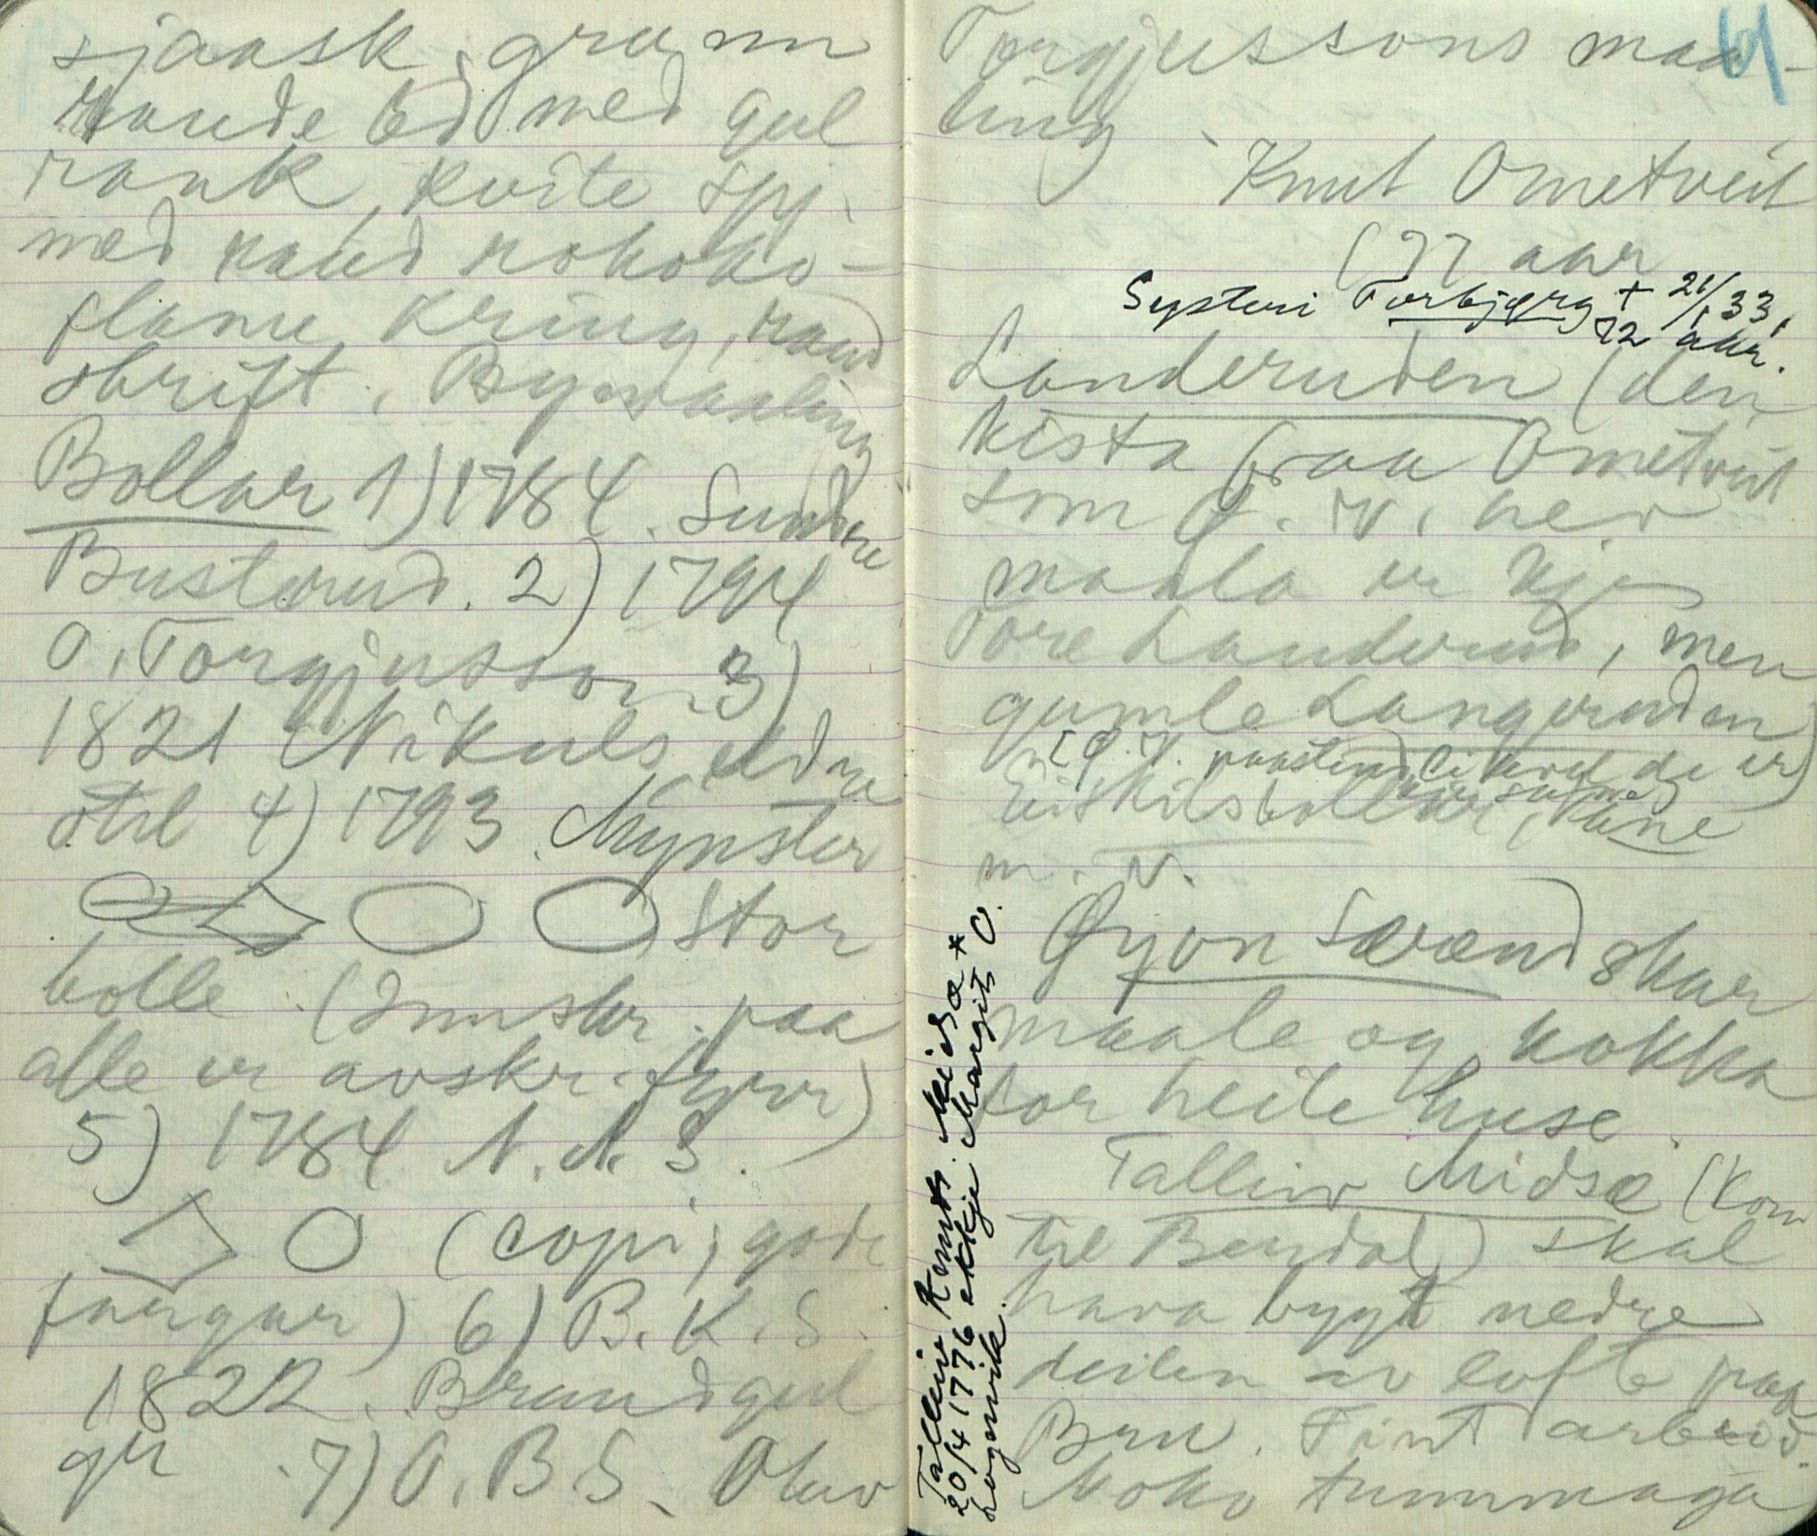 sjaask, grøn
raude bd med gul
rank, kvite spj.
med raud rokoko-
flame kring, raud
skrift. Bymaaling
Bollar 1) 1784. Sundre
Busterud. 2) 1794
O. Torgjusson 3)
1821 Nikuls eldre
stil 4) 1793. Mynster
Stor
bolle. (Innskr. paa
alle er avskr. fyrr)
5) 1784 N. N. S.
(copi, gode
fargar) 6) B. K. S.
1822. Brandgul
gr 7) O. B. S. Oluv
61
Torgjussons maa-
ling
Knut Ometveit
(77 aar
Systeri Torbjørg + 21/1 33,
72 aar.
Landeruden (den
kista fraa Ometveit
som G. N. her
maala er kje
Tore Landerud, men
gamle Langeruden)
[G. N. paastend likevel de er
dær same)
Eiskilsbollar, Rane
m. v.
Gjøn Særend skar
maale og rokka
for heile huse.
Talleiv Midsæ (kom
til Berdal) skal
hava bygt nedre
deilen av lofte paa
Bru. Fint arbeid.
Noko tummaga
Talleiv Knuts. Meidsæ *
20/4 1776 ekkje Margit O.
Løgavik.